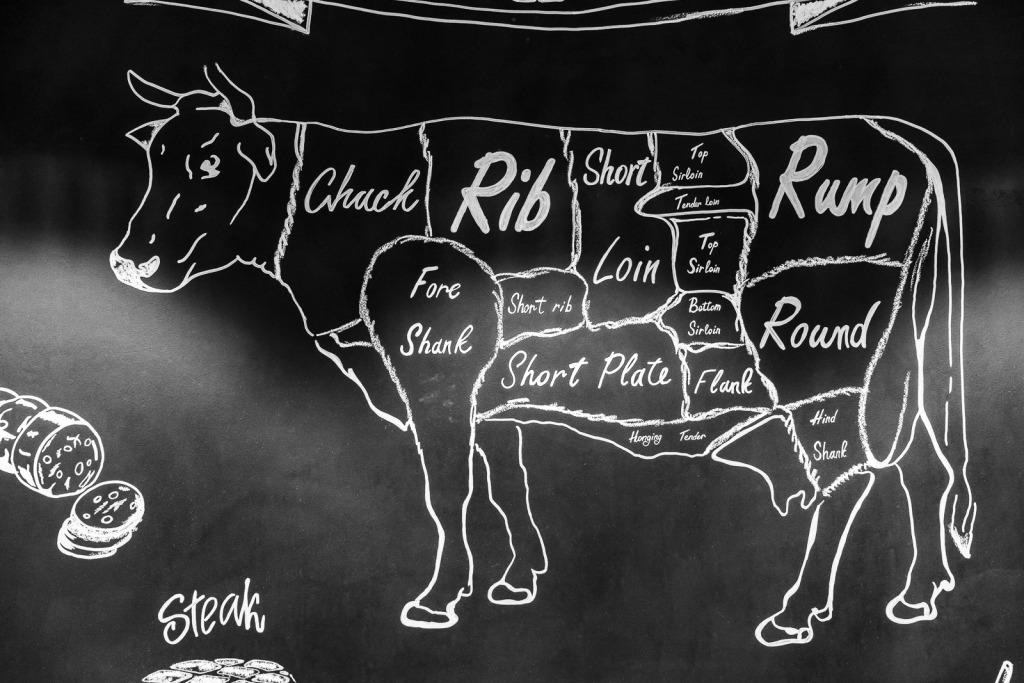 Chack
Rib
Short
Loin
Top
Sirloin
Tender loin
Top
Sirloin
Bottom
Sirloin
Rump
Round
Fore
Shank
Short rib
Short Plate
Flank
Honging Tender
Hind
Shank
Steak